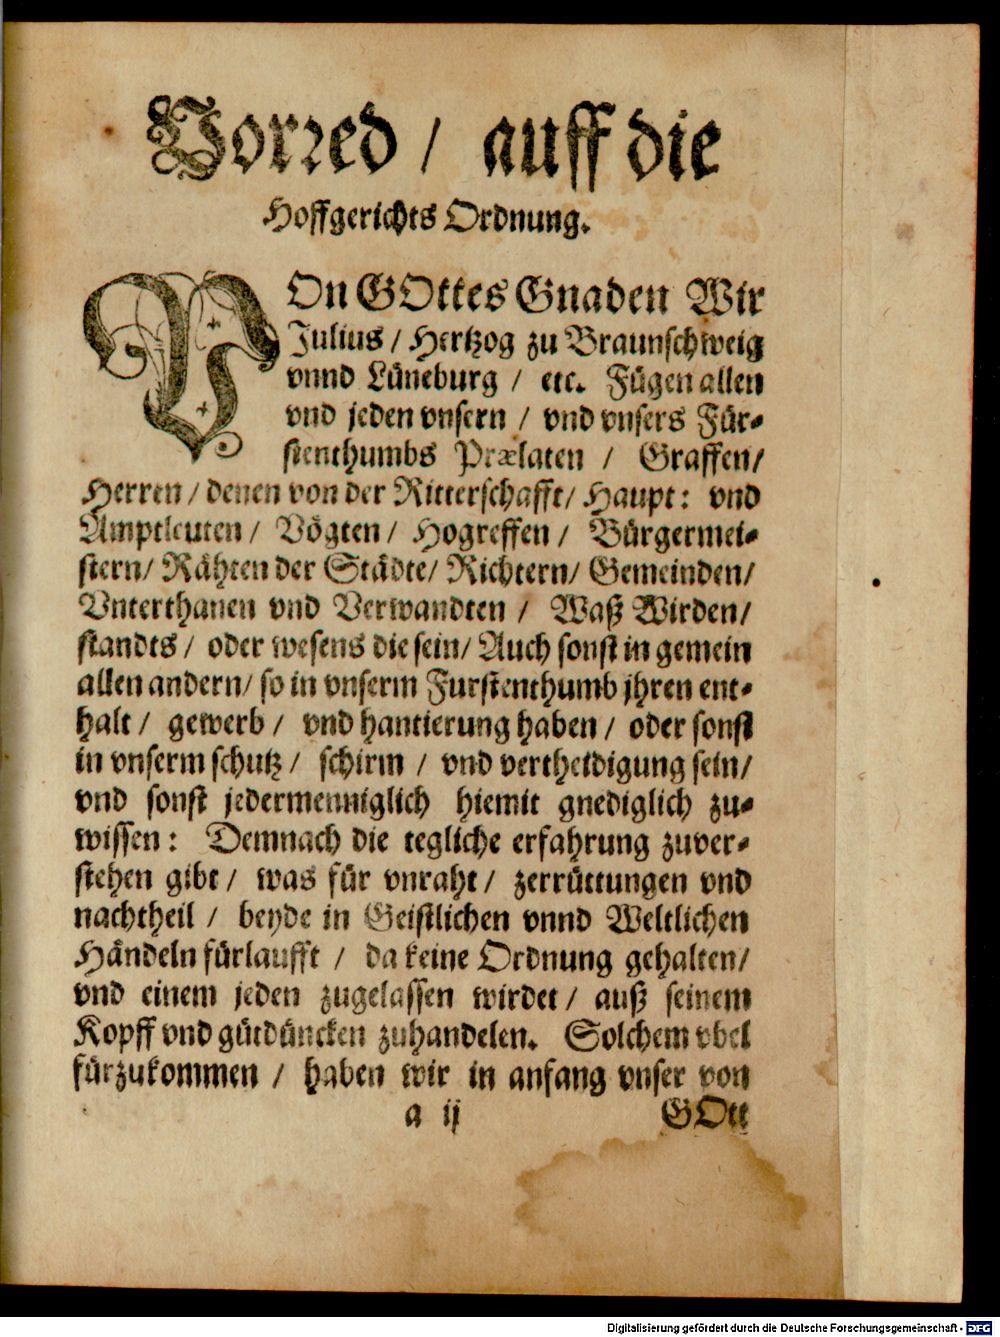 Vorꝛed / auff die
Hoffgerichts Ordnung.
VOn GOttes Gnaden Wir
Julius / Hertzog zu Braunschweig
vnnd Lüneburg / etc. Fügen allen
vnd jeden vnsern / vnd vnsers Für-
stenthumbs Prælaten / Graffen/
Herren / denen von der Ritterschafft/ Haupt: vnd
Amptleuten / Vögten / Hogreffen / Bürgermei-
stern/ Rähten der Städte/ Richtern/ Gemeinden/
Vnterthanen vnd Verwandten / Waß Wirden/
standts / oder wesens die sein/ Auch sonst in gemein
allen andern/ so in vnserm Furstenthumb jhren ent-
halt / gewerb / vnd hantierung haben / oder sonst
in vnserm schutz / schirm / vnd vertheidigung sein/
vnd sonst jedermenniglich hiemit gnediglich zu-
wissen: Demnach die tegliche erfahrung zuver-
stehen gibt / was für vnraht / zerrüttungen vnd
nachtheil / beyde in Geistlichen vnnd Weltlichen
Händeln fürlaufft / da keine Ordnung gehalten/
vnd einem jeden zugelassen wirdet / auß seinem
Kopff vnd gütdüncken zuhandelen. Solchem vbel
fürzukommen / haben wir in anfang vnser von
a ij GOtt
Digitalisierung gefördert durch die Deutsche Forschungsgemeinschaft - DFG